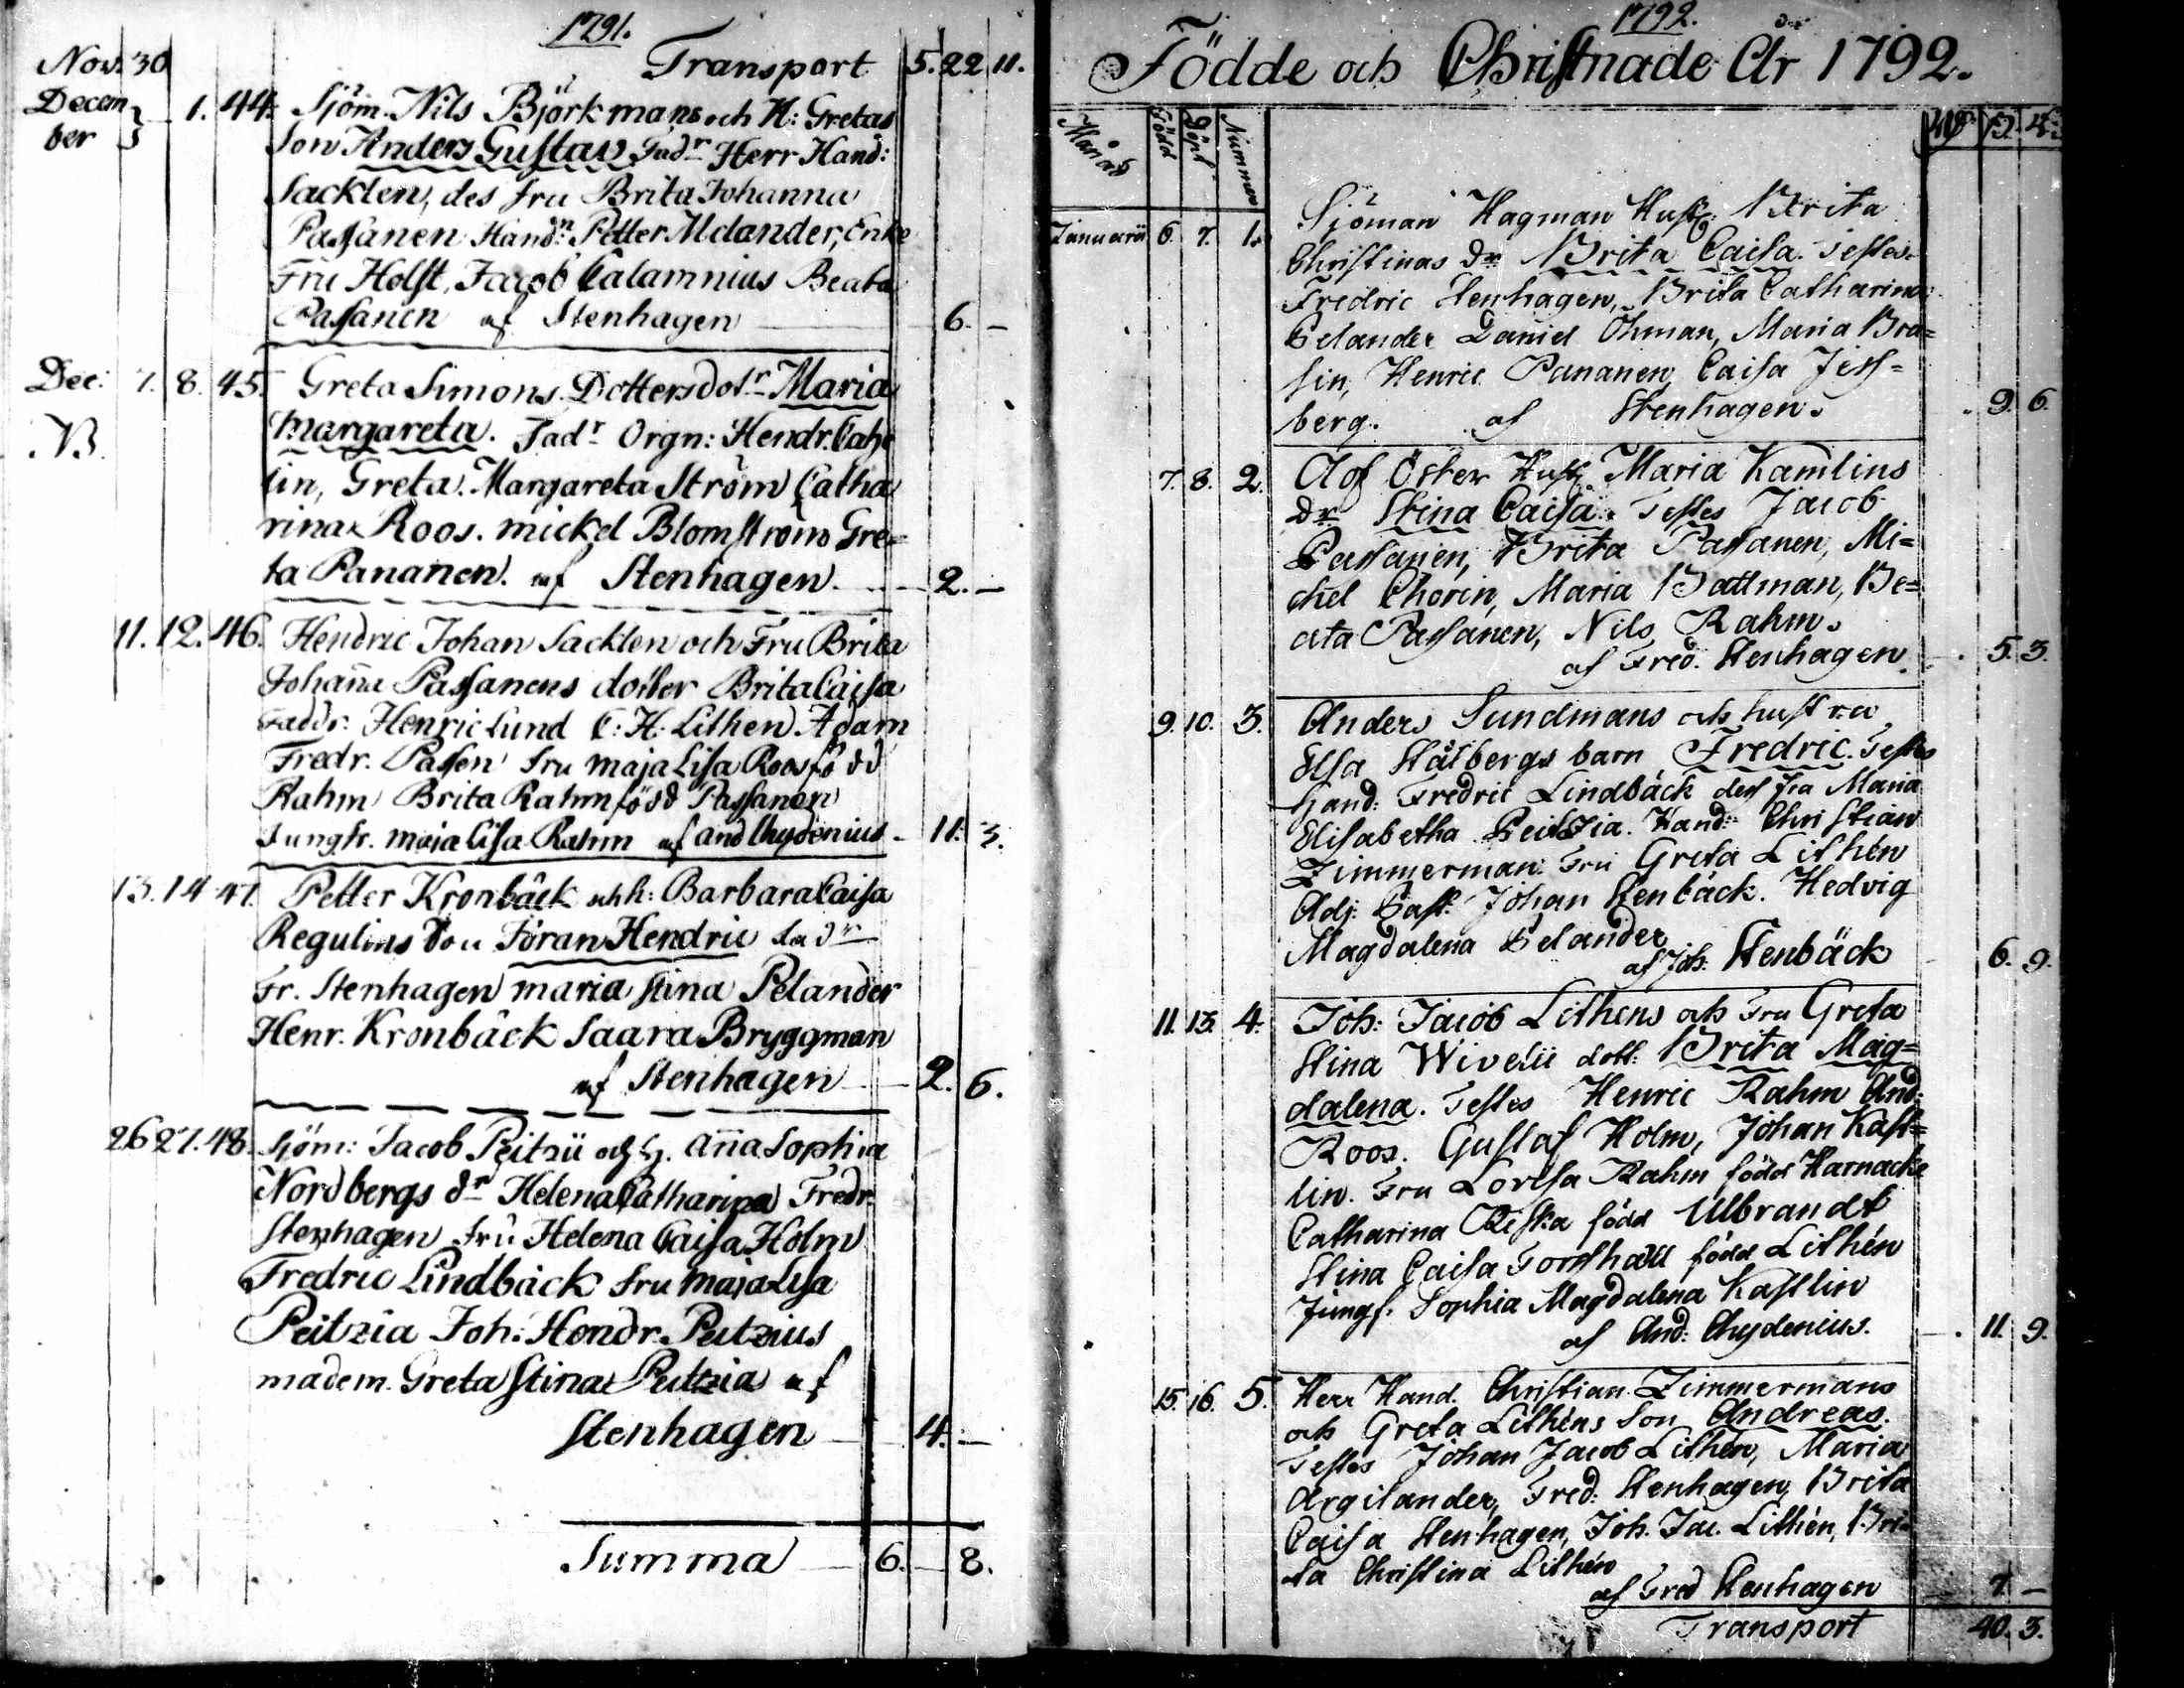 1791.
Nov. 30 Transport 5. 22 11.
Decem ber } 1. 44. Sjöm. Nils Björkmans och H: Gretas
Son Anders Gustav Fadr Herr Hand:
Sacklen, des fru Brita Johanna
Passanen Handn Petter Melander, Enke
Fru Holst, Jacob Calamnius Beata
Passanen af Stenhagen 6. -
Dec: 7. 8. 45. Greta Simons Dotters dotr Maria
NB. Margareta. Fadr Orgn: Hendr. Cah
lin, Greta Margareta Ström Catha
rina Roos. mickel Blomström Gre=
ta Pananen. af Stenhagen 2. -
11. 12. 46. Hendric Johan Sacklen och Fru Brita
Johanna Passanens dotter Brita Caisa
Faddr. Henric Lund C: H. Lithen Adam
Fredr. Passen fru maja Lisa Roos född
Rahm Brita Rahm född Passanen
Jungfr. maja Lisa Rahm af And Chydenius 11. 3.
13. 14 47. Petter Kronbäck och h: Barbara Caisa
Regulins Son Jöran Hendric fadr
Fr. Stenhagen maria Stina Pelander
Henr. Kronbäck Saara Bryggman
af Stenhagen 2. 6.
26 27. 48. Sjöm: Jacob Peitzii och h. Anna Sophia
Nordbergs dr Helena Catharina Fredr.
Stenhagen fru Helena Caisa Holm
Fredric Lindbäck fru maja Lisa
Peitzia Joh: Hendr. Peitzius
madem. Greta Stina Peitzia af
Stenhagen 4. -
Summa 6. - 8.
1792.
Födde och Christnade År 1792.
Månad Född Döpt Nummer
Januarii 6. 7. 1. Sjöman Hagman Hust. Brita
Christinas dr Brita Caisa. Testes.
Fredric Stenhagen, Brita Catharina
Pelander Daniel Öhman, Maria Bra=
sin, Henric Pananen, Caisa Jess=
berg. af Stenhagen. 9. 6.
7. 8. 2. Olof Öster Hust. Maria Kamlins
dr Stina Caisa. Testes Jacob
Passanen, Brita Passanen, Mi=
chel Chorin, Maria Battman, Be=
ata Passanen, Nils Rahm.
af Fred. Stenhagen. 5. 3.
9. 10. 3. Anders Sundmans och hustru
Elsa Stålbergs barn Fredric. Testes
Hand: Fredric Lindbäck dess fru Maria
Elisabetha Peitzia. Hand: Christian
Zimmerman. Fru Greta Lithén
Adj: Past: Johan Stenbäck. Hedvig
Magdalena Pelander
af Joh: Stenbäck 6. 9.
11. 13. 4. Joh: Jacob Lithens och Fru Greta
Stina Wivelii dott: Brita Mag=
dalena. Testes Henric Rahm And:
Roos. Gustaf Holm, Johan Kast=
lin. Fru Lovisa Rahm född Harnacke
Catharina född Ulbrandt
Stina Caisa född Lithén
Jungf. Sophia Magdalena Kastlin
af And: Chydenius. 11. 9.
15. 16. 5. Herr Hand. Christian Zimmermans
och Greta Lithéns Son Andreas.
Testes Johan Jacob Lithen, Maria
Argilander, Fred: Stenhagen, Brita
Caisa Stenhagen, Joh. Jac. Lithén, Bri=
ta Christina Lithén
af Fred Stenhagen 7. -
Transport 40. 3.